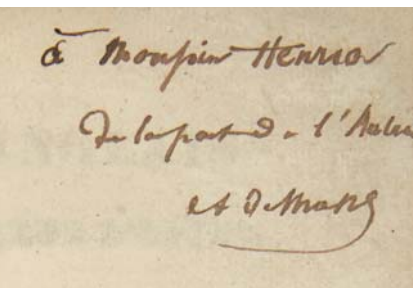 à Monsieur Henrion
de la part de l'Auteur
et Demasq